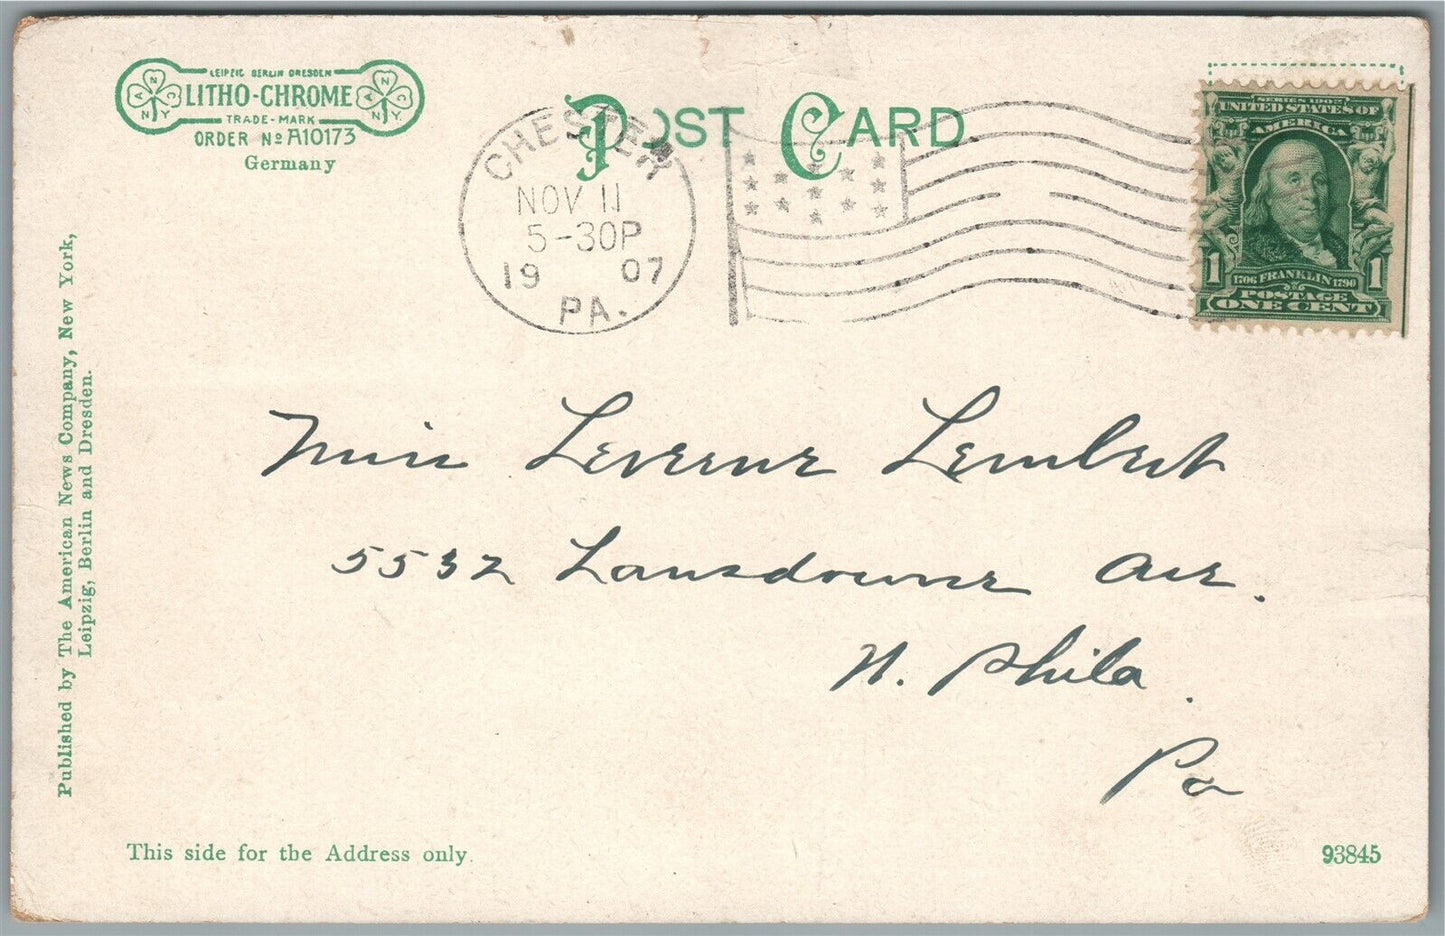 LEIPZIG BERLIN DRESDEN
A N C N Y
LITHO-CHROME
A N C N Y
TRADE-MARK
ORDER No A10173
Germany
POST CARD
CHESTER
NOV 11
5-30P
1907
PA.
SERIES 1902
UNITED STATES OF
AMERICA
1 1706 FRANKLIN 1790 1
POSTAGE
ONE CENT
Published by The American News Company, New York,
Leipzig, Berlin and Dresden.
Miss Leverne Lembert
5532 Lansdowne Ave.
W. Phila.
Pa
This side for the Address only.
93845